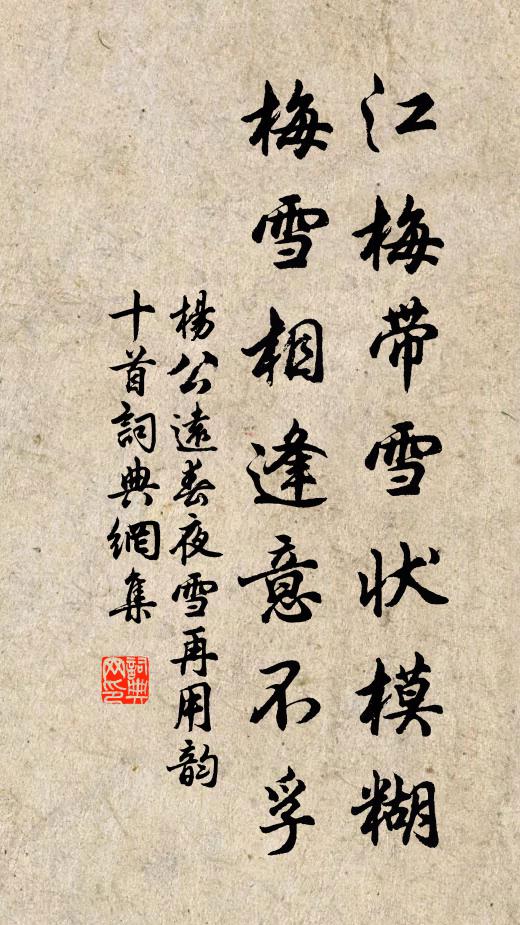 江梅带雪状模糊
梅雪相逢意不孚
楊公遠春夜雪再用韵
十首詞典網集
詞典网印